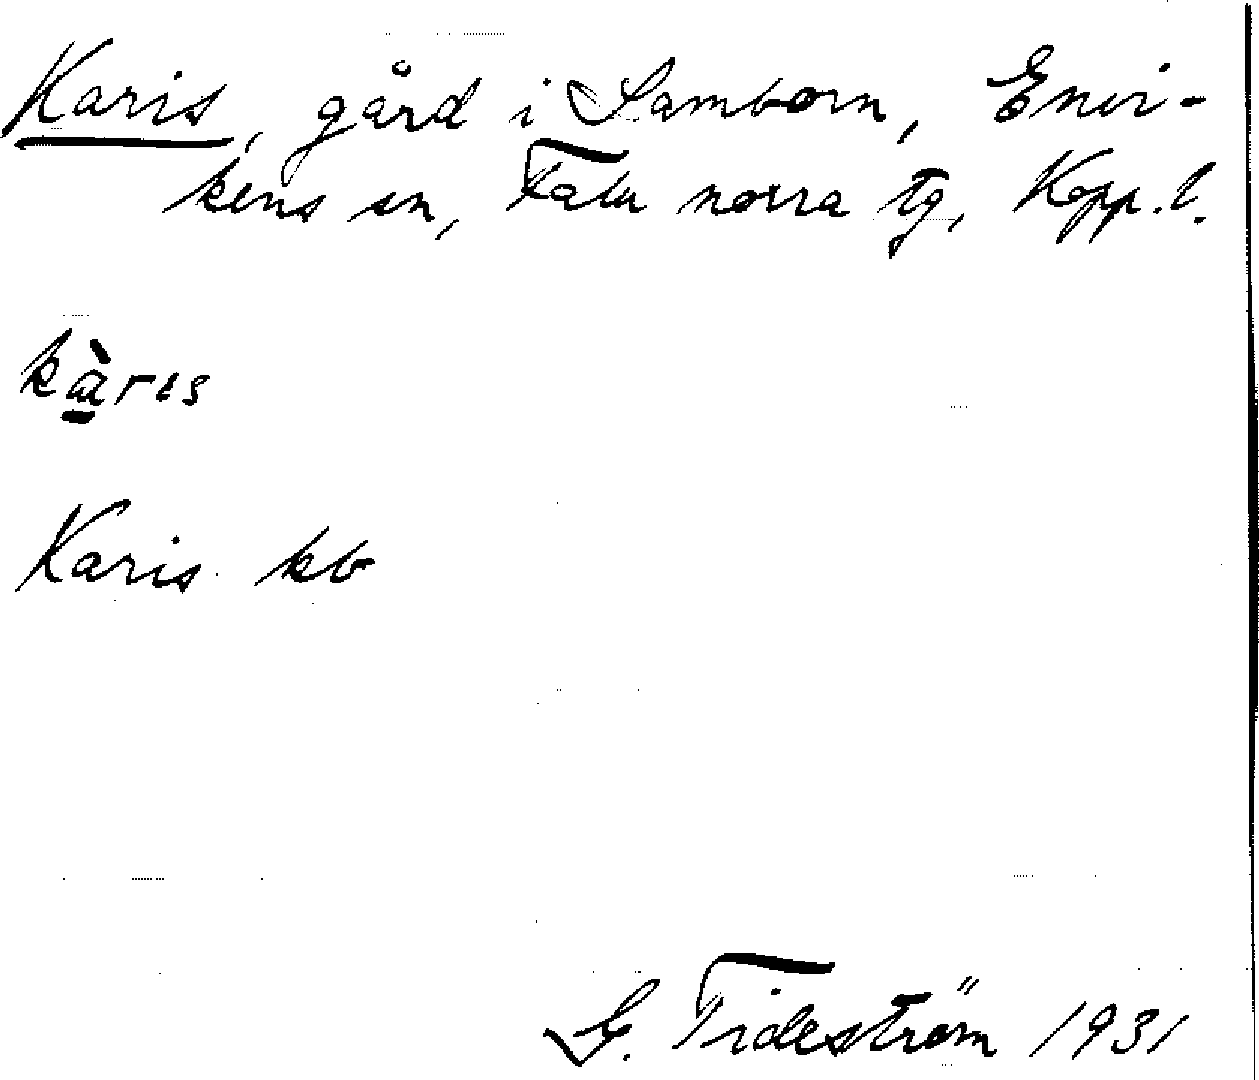 Karis, gård i Lamborn, Envi-
kens sn, Falu norra tg, Kopp. l.
kàris
Karis kb
G. Tideström 1931